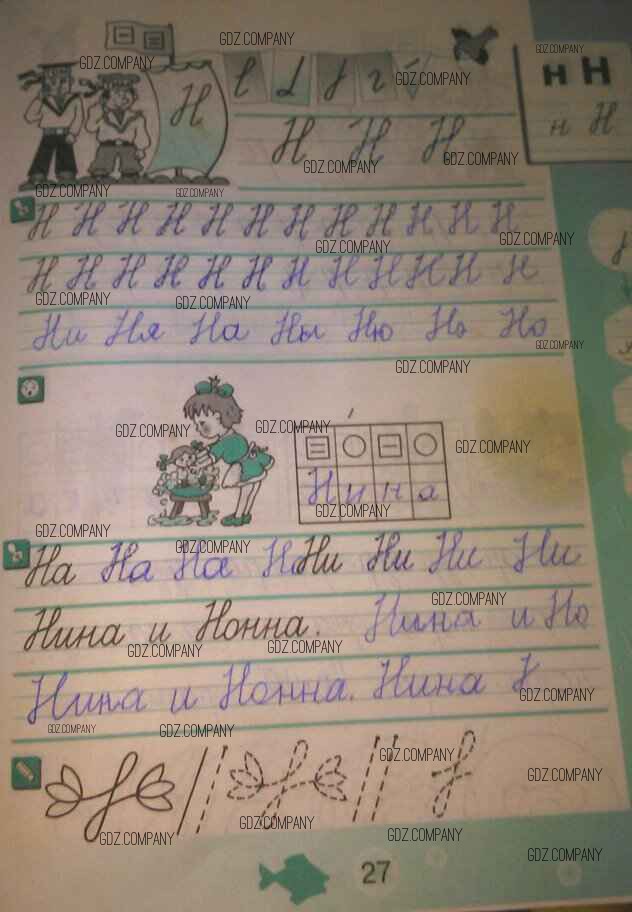 н Н
н Н
Н
Н Н Н
Н Н Н Н Н Н Н Н Н Н Н Н
Н Н Н Н Н Н Н Н Н Н Н Н
Ни Ня На Ны Ню Но Но
Нина
На На На На Ни Ни Ни Ни
Нина и Нонна. Нина и Но
Нина и Нонна. Нина
27
GDZ.COMPANY